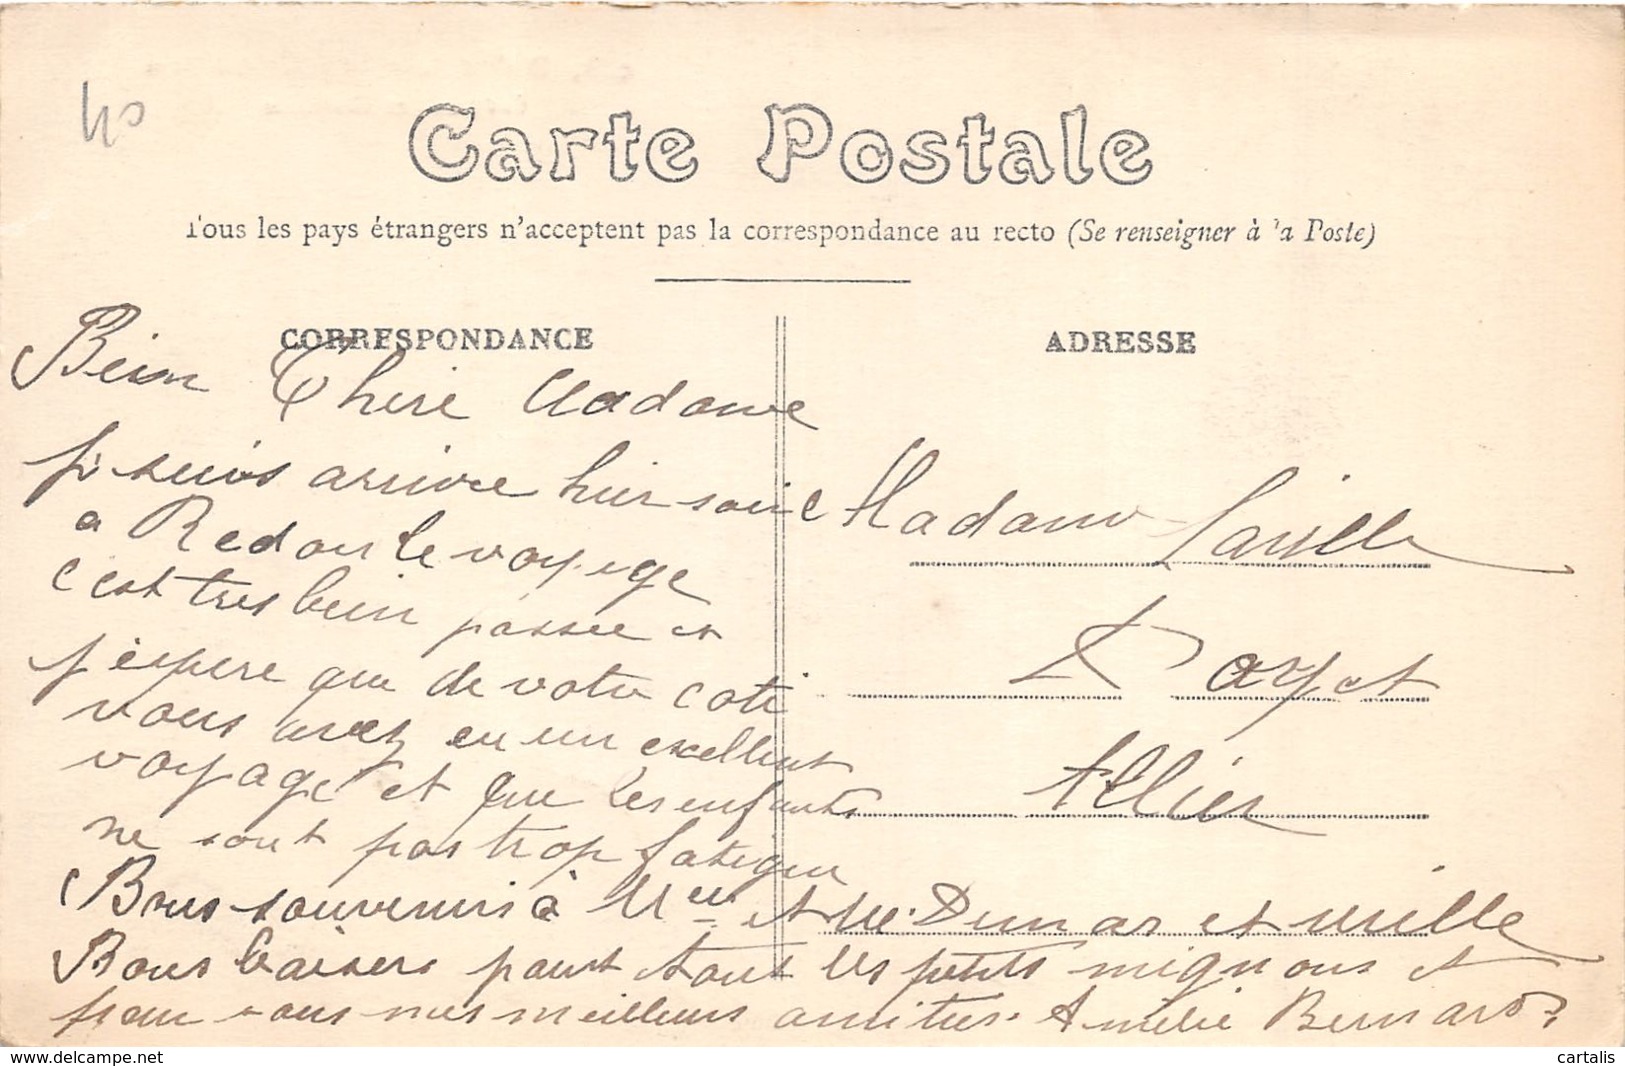 40
Carte Postale
Tous les pays étrangers n'acceptent pas la correspondance au recto (Se renseigner à la Poste)
CORRESPONDANCE
Bein Chere Madame
je suis arrivee hier soir
a Redon le voyage
c'est tres bein passee et
j'espere que de votre coté
vous avez eu un excellent
voyage et que les enfants
ne sont pas trop fatigue
Bons souvenirs à Mme et Mr. Dumas et mille
Bons baisers pour tout les petits mignons et
pour vous mes meilleurs amities. Amelie Bernard
ADRESSE
Madame
Doyet
Allier
cartalis